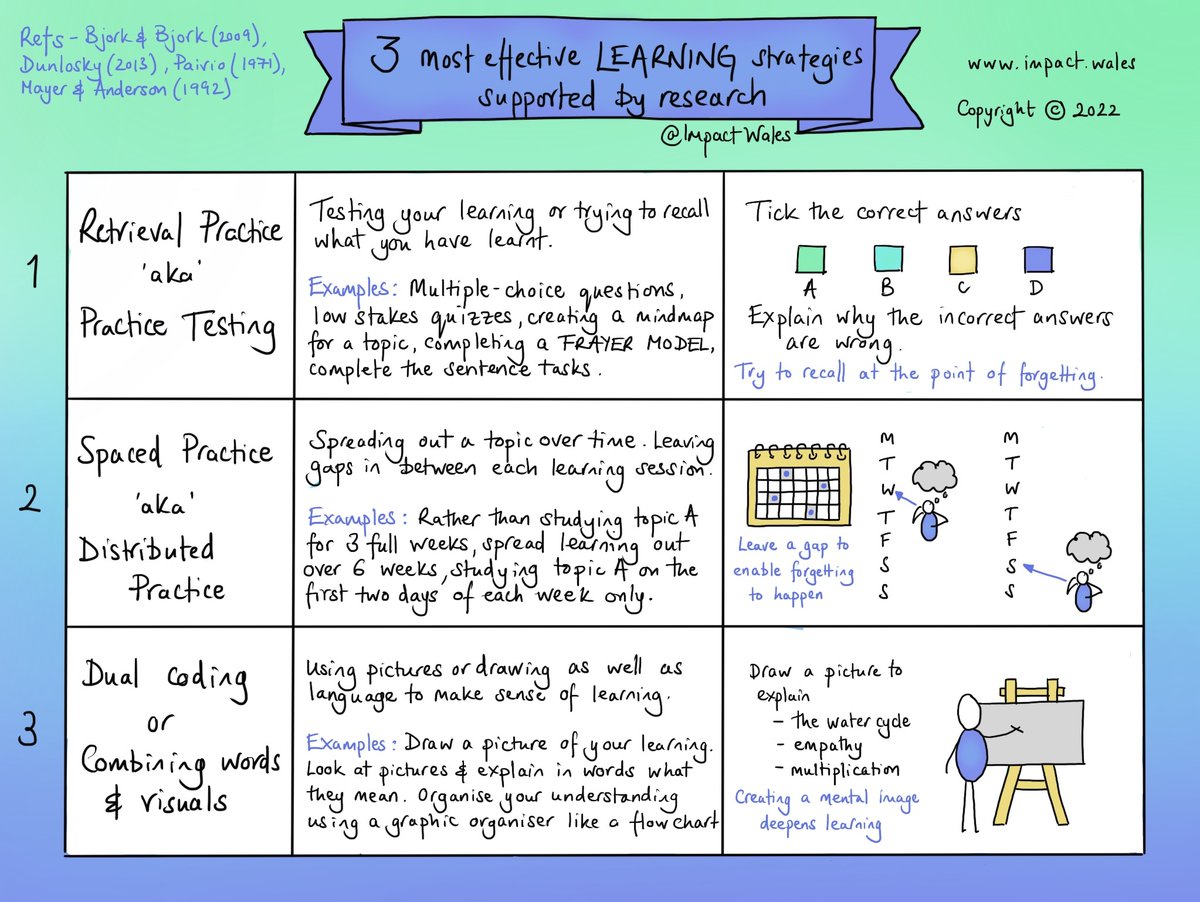 Refs - Bjork & Bjork (2009),
Dunlosky (2013), Paivio (1971),
Mayer & Anderson (1992)
3 most effective LEARNING strategies
supported by research
@ImpactWales
www.impact.wales
Copyright © 2022
1
Retrieval Practice
'aka'
Practice Testing
Testing your learning or trying to recall
what you have learnt.
Examples: Multiple-choice questions,
low stakes quizzes, creating a mindmap
for a topic, completing a FRAYER MODEL,
complete the sentence tasks.
Tick the correct answers
A B C D
Explain why the incorrect answers
are wrong.
Try to recall at the point of forgetting.
2
Spaced Practice
'aka'
Distributed
Practice
Spreading out a topic over time. Leaving
gaps in between each learning session.
Examples: Rather than studying topic A
for 3 full weeks, spread learning out
over 6 weeks, studying topic A on the
first two days of each week only.
Leave a gap to
enable forgetting
to happen
M
T
W
T
F
S
S
M
T
W
T
F
S
S
3
Dual Coding
or
Combining words
& visuals
Using pictures or drawing as well as
language to make sense of learning.
Examples: Draw a picture of your learning.
Look at pictures & explain in words what
they mean. Organise your understanding
using a graphic organiser like a flowchart
Draw a picture to
explain
- the water cycle
- empathy
- multiplication
Creating a mental image
deepens learning